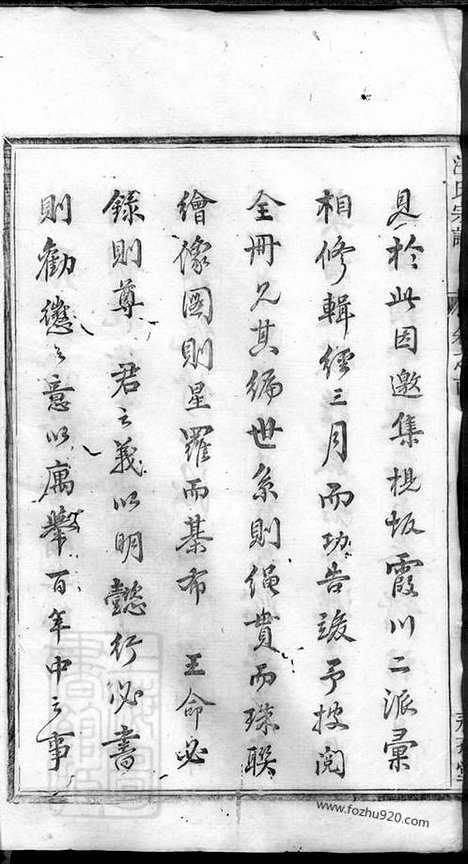 見於此因邀集梘坂霞川二派彙
相修輯經三月而功告竣予披閱
全冊見其編世系則繩貫而珠聯
繪像圖則星羅而棊布　王命必
錄則尊　君之義以明懿行必書
則勸懲之意以寓舉百年中之事
www.fozhu920.com